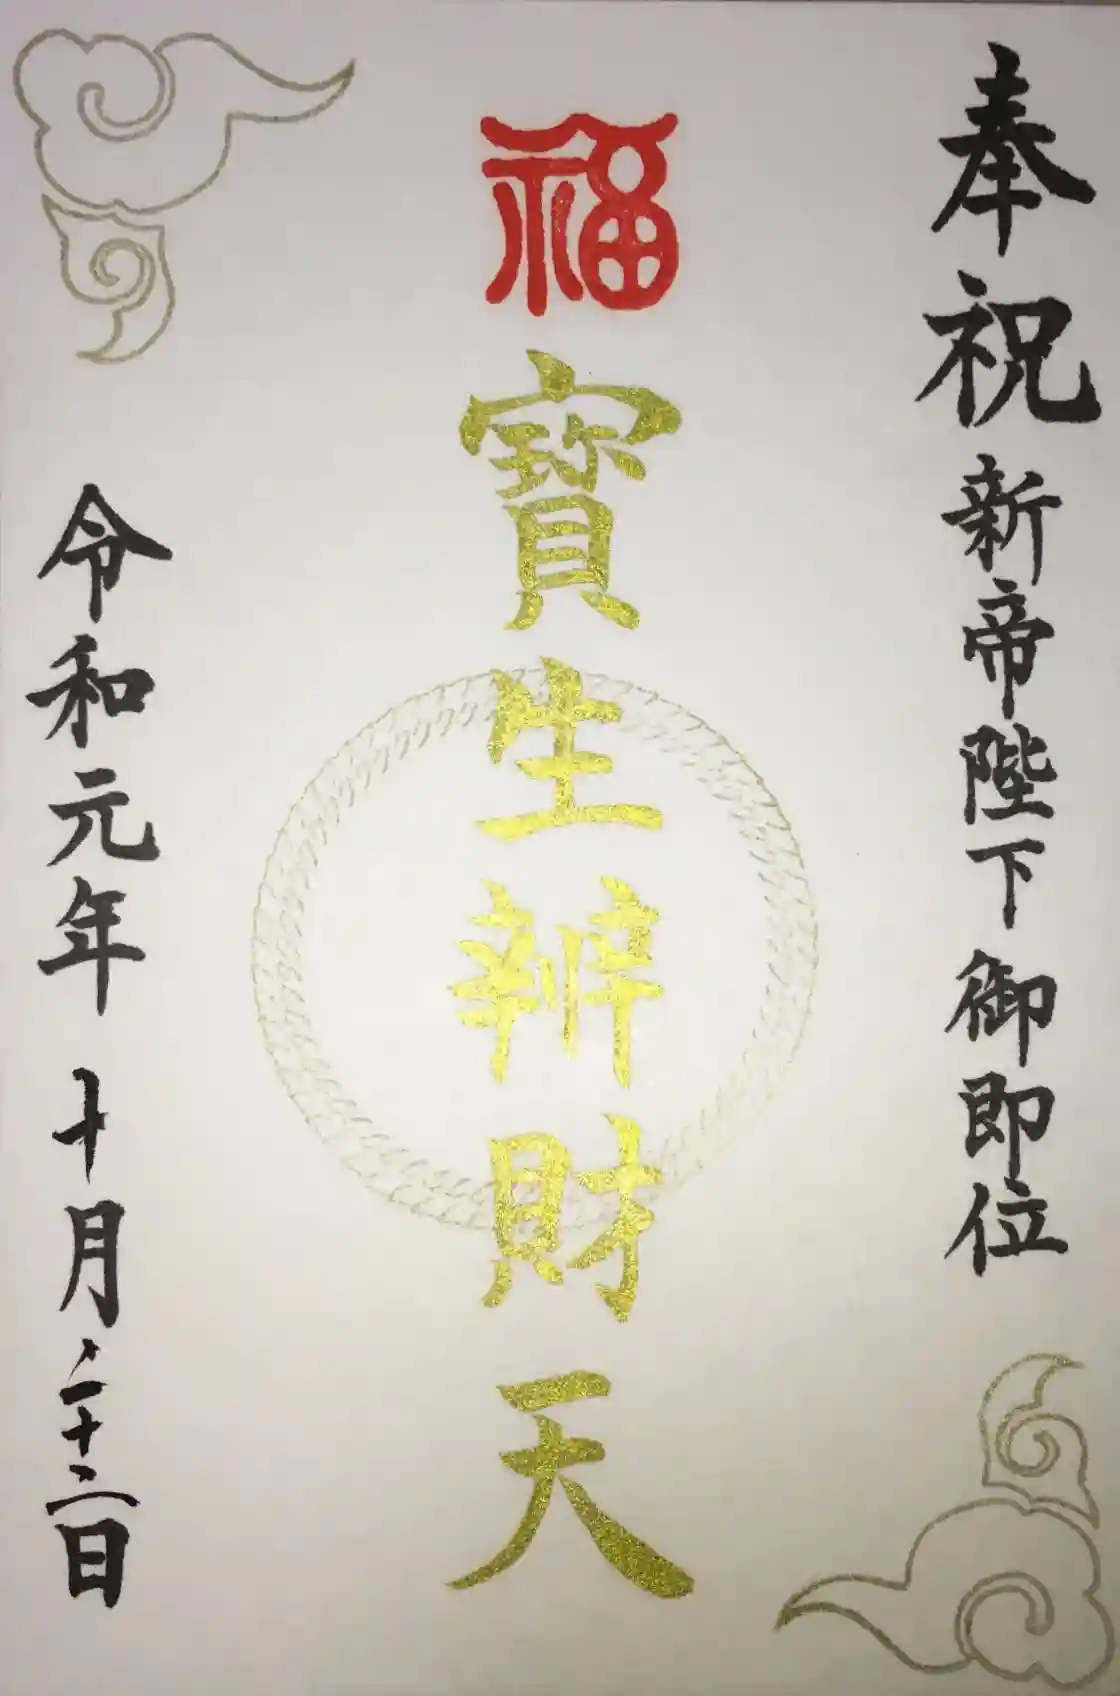 奉祝 新帝陛下 御即位
福
寶生辨財天
令和元年 十月二十二日